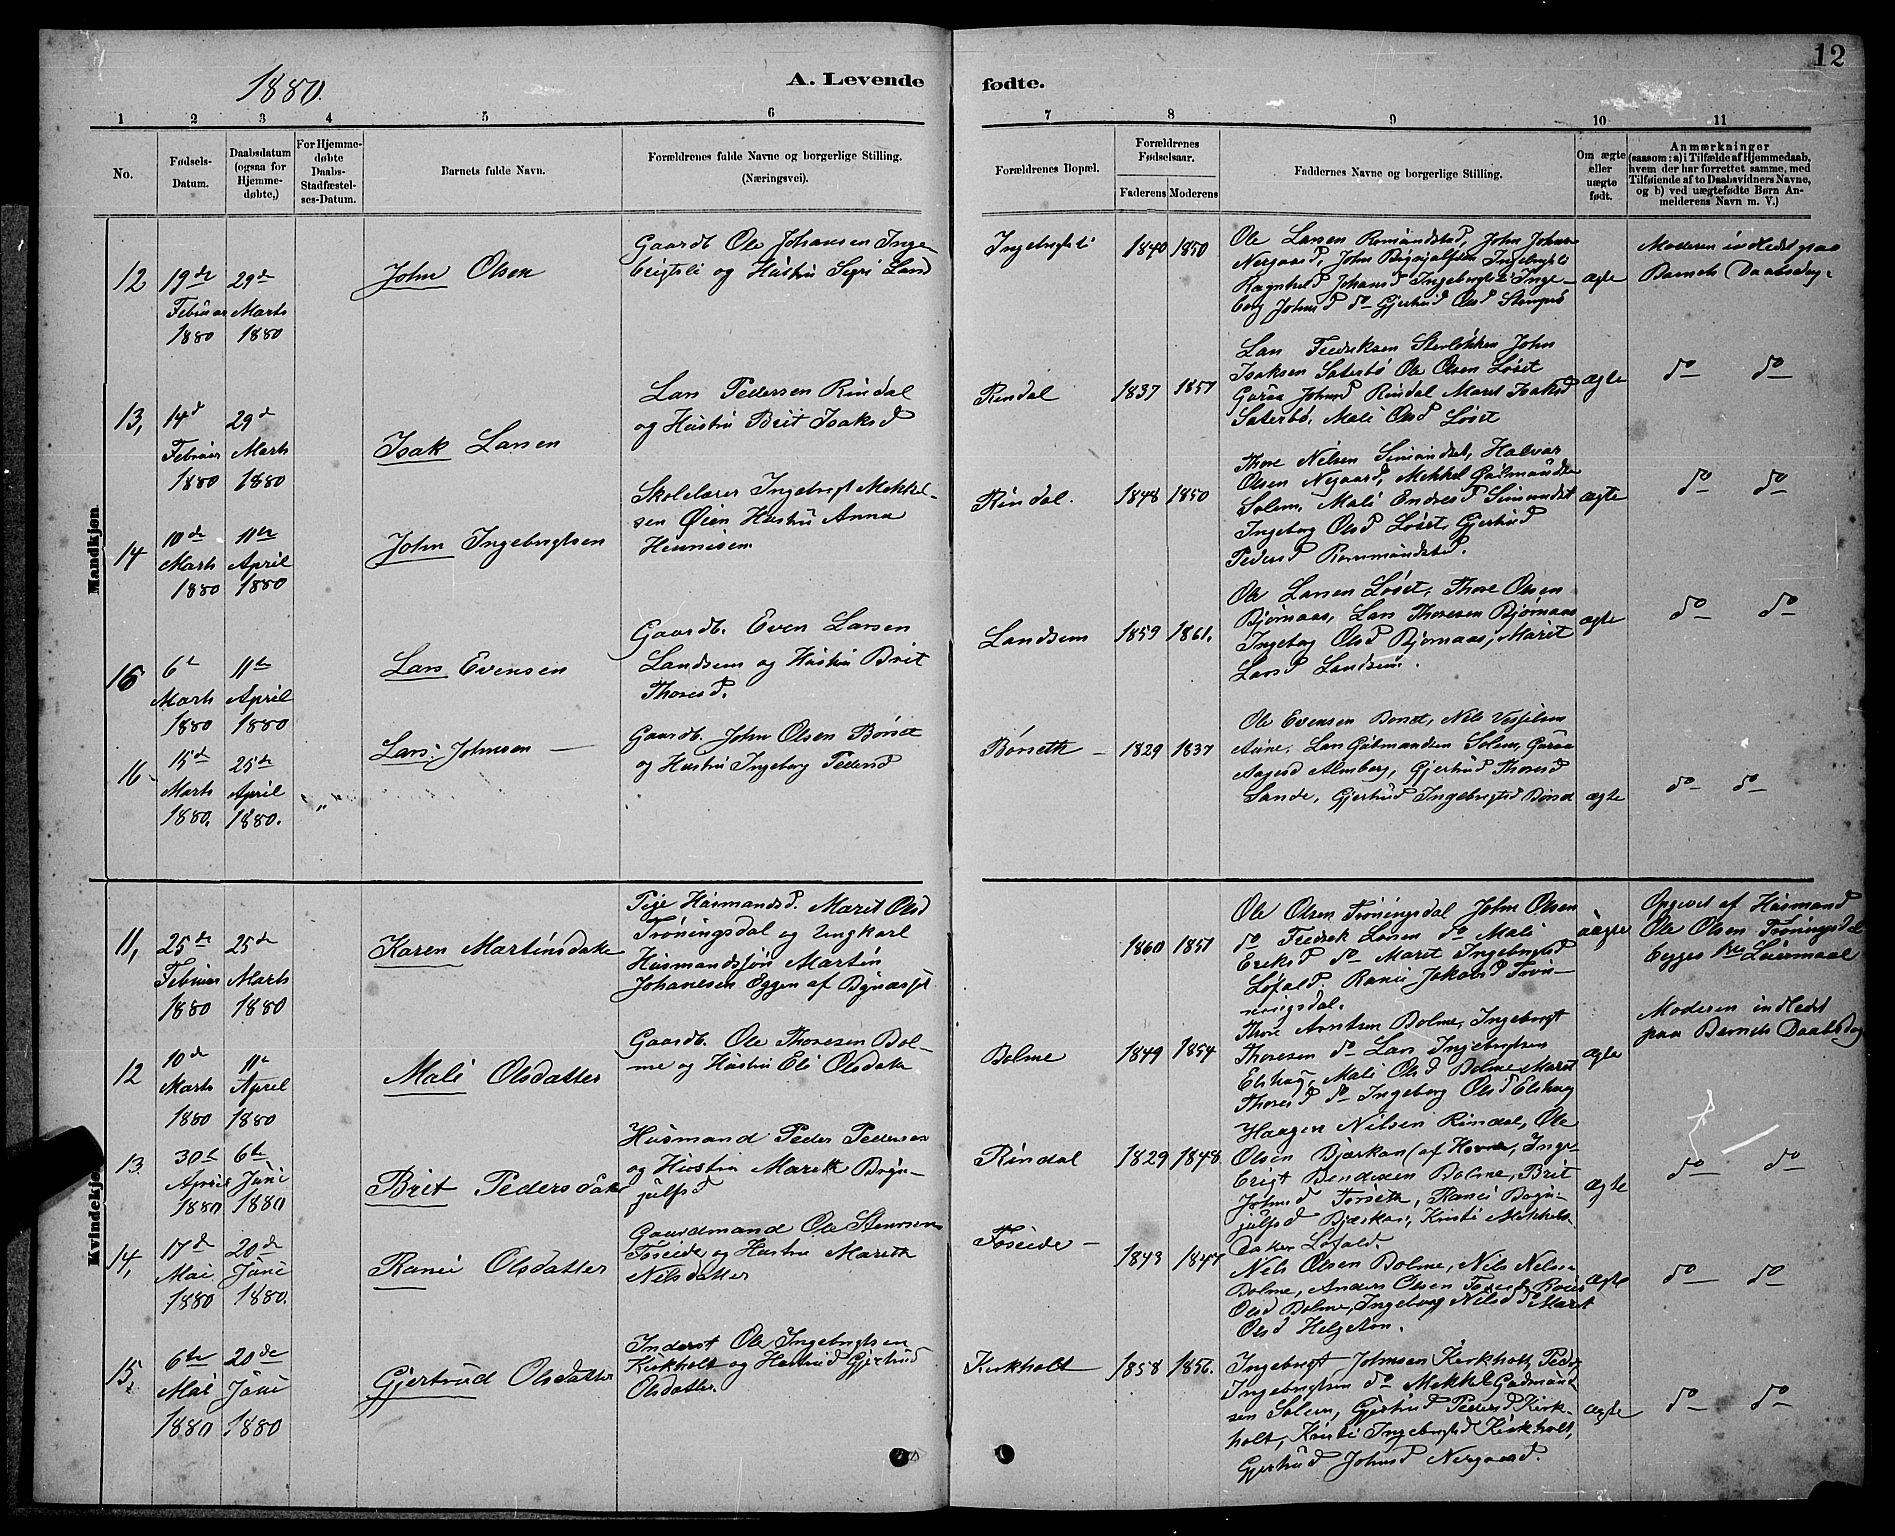 12
1880.
A. Levende
fødte.
1 2 3 4 5 6
7 8 9 10 11
No.
Fødsels-
Datum.
Daabsdatum
(ogsaa for
Hjemme-
døbte,)
For Hjemme-
døbte
Daabs-
Stadfæstel-
ses-Datum.
Barnets fulde Navn.
Forældrenes fulde Navne og borgerlige Stilling.
(Næringsvei).
Forældrenes Bopæl.
Forældrenes
Fødselsaar.
Faderens Moderens
Faddernes Navne og borgerlige Stilling.
Om ægte
eller
uægte
født.
Anmærkninger
(saasom: a) i Tilfælde af Hjemmedaab,
hvem der har forrettet samme, med
Tilføiende af to Daabsvidners Navne,
og b) ved uægtefødte Børn An-
melderens Navn m. V.)
Mandkjøn.
12
19de
Februar
1880
29de
Marts
1880
John Olsen
Gaardb. Ole Johansen Inge-
brigtsli og Hustru Sigri Land
Ingebrigtsli
1840 1850
Ole Larsen Romundstad, John Johnsen
Nergaard, John Ingebrigtsli
Ragnhild Johansd Ingebrigtsli Inge-
borg Johnsd do Gjertrud Olsd
ægte
Moderen indledet paa
Barnets Daabsdag.
13,
14d
Februar
1880
29
Marts
1880
Isak Larsen
Lars Pedersen Rindal
og Hustru Brit Isaksd
Rindal
1837 1857
Lars Fredriksen John
Isaksen Saterbø Ole Olsen Løset
Guraa Johnsd Rindal Marit Isaksd
Saterbø, Mali Olsd Løset
ægte
do do
14
10de
Marts
1880
11te
April
1880
John Ingebrigtsen
Skolelærer Ingebrigt Mekkel-
sen Øien Hustru Anna
Hennisen
Rindal.
1848 1850
Thore Nilsen Simundset, Halvar
Olsen Nergaard, Mekkel Gudmundsen
Solem, Mali Endresd Simundset
Ingeborg Olsd Løset, Gjertrud
Pedersd Rommundstad.
ægte
do do
15
6te
Marts
1880
11te
April
1880
Lars Evensen
Gaardb. Even Larsen
Landsem og Hustru Brit
Thoresd.
Landsem
1859 1861.
Ole Larsen Løset, Thore Olsen
Bjørnaas, Lars Thoresen Bjørnaas
Ingeborg Olsd Bjørnaas, Marit
Larsd Landsem.
ægte
do do
16
15de
Marts
1880.
25de
April
1880.
"
Lars Johnsen
Gaardb. John Olsen Børset
og Hustru Ingeborg Pedersd
Børseth
1829 1837
Ole Evensen Børset, Nils
Aune, Lars Gudmundsen Solem, Guraa
Aagesd Almberg, Gjertrud Thoresd
Sande, Gjertrud Ingebrigtsd Børset
ægte
do do
Kvindekjøn
11,
25de
Februar
1880
25de
Marts
1880
Karen Martinsdatter
Pige Husmandsd. Marit Olsd
Trøningsdal og Ungkarl
Husmandssøn Martin
Johanesen Eggen af Bynæsset
1860 1851
Ole Olsen Trøningsdal John Olsen
do Fredrek Larsen do Mali
Eriksd do Marit Ingebrigtsd
Løfald. Ranei Johansd Trøn-
ningsdal.
uægte
Opgivet af Husmand
Ole Olsen Trøningsdal
begges 1ste Leiermaal
12
10de
Marts
1880
11te
April
1880
Mali Olsdatter
Gaardb. Ole Thoresen Bol-
me og Hustru Eli Olsdatter
Bolme
1849 1854
Thore Arntsen Bolme, Ingebrigt
Thoresen do Lars Ingebrigtsen
Elshaug, Mali Olsd Bolme Marit
Thoresd do Ingeborg Olsd Elshaug
ægte
Moderen indledet
paa Barnets Daabsdag
13
30te
April
1880
6te
Juni
1880
Brit Pedersdatter
Husmand Peder Pedersen
og Hustru Marith Brynjulfsd
Rindal
1829 1848.
Haagen Nilsen Rindal, Ole
Olsen Bjørkan (af Hovne, Inge-
brigt Bendixen Bolme, Brit
Johnsd Torseth, Ranei Brynjulfsd
Bjørkas, Kristi Mekkels-
datter Løfald.
ægte
do do
14,
17de
Mai
1880
20de
Juni
1880.
Ranei Olsdatter
Gaardmand Ole Steursen
Foseide og Hustru Marith
Nilsdatter
Foseide
1843 1847
Nils Olsen Bolme, Nils Nilsen
Bolme, Anders Olsen Foseide Ranei
Olsd Bolme, Ingeborg Nilsd Marit
Olsd Helgetun.
ægte
do do
15,
6te
Mai
1880
20de
Juni
1880
Gjertrud Olsdatter
Inderst Ole Ingebrigtsen
Kirkholt og Hustrud Gjertrud
Olsdatter
Kirkholt
1858 1856.
Ingebrigt Johnsen Kirkholt, Peder
Ingebrigtsen do Mekkel Gudmund-
sen Solem, Gjertrud Pedersd Kirk-
holt, Kristi Ingebrigtsd Kirkholt,
Gjertrud Johnsd Nergaard.
ægte
do do